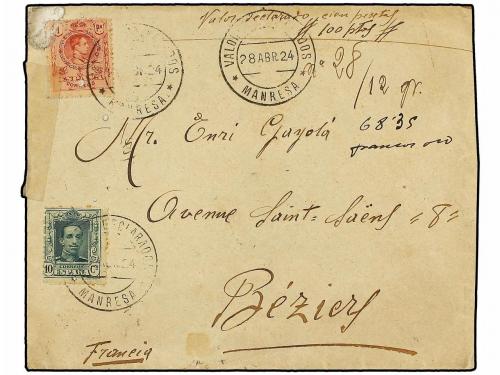 Valor declarado cien pesetas
# 100 pts #
nº 28
/12 gr.
68'35
francos oro
Mr. Enri Gayolá
Avenue Saint-Saëns "8"
Béziers
Francia
1 Pta
VALORES DECLARADOS
28 ABR. 24
MANRESA
10 Cs
CORREOS
ESPAÑA
DECLARADOS
24
MANRESA